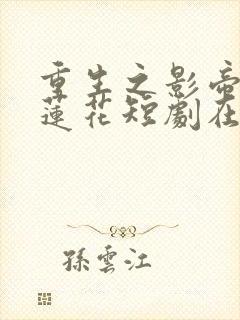 重生之影帝
蓮花短劇在
孫雲江